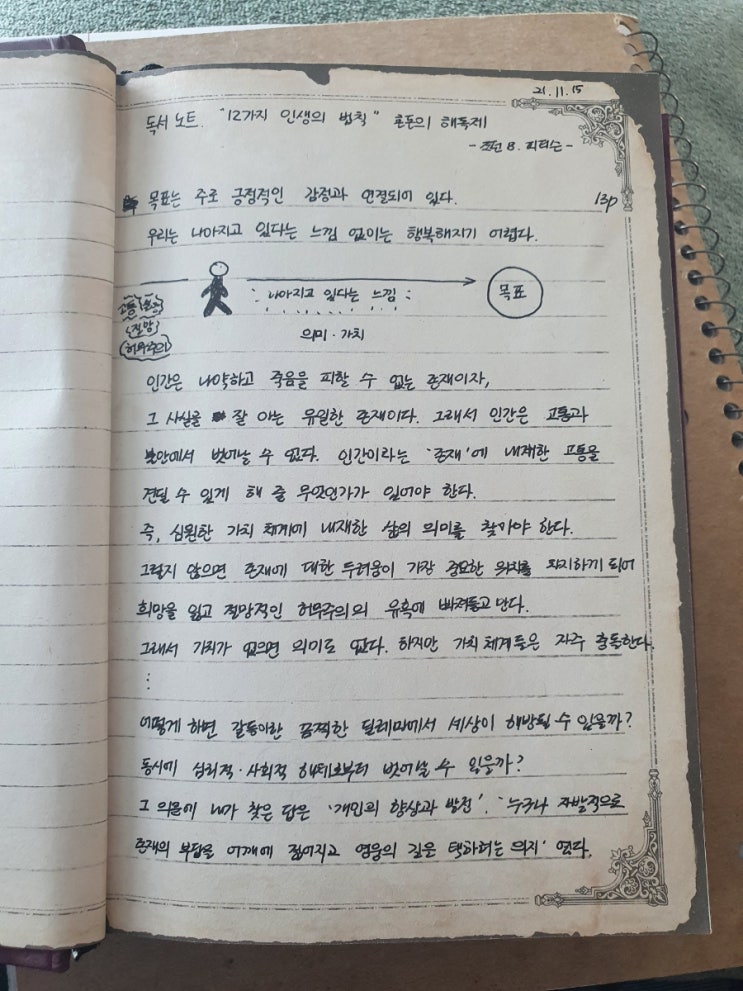 21.11.15
독서 노트. "12가지 인생의 법칙" 혼돈의 해독제
- 조던 B. 피터슨 -
목표는 주로 긍정적인 감정과 연결되어 있다. 13p
우리는 나아지고 있다는 느낌 없이는 행복해지기 어렵다.
고통 혼돈
절망
허무주의
나아지고 있다는 느낌
목표
의미·가치
인간은 나약하고 죽음을 피할 수 없는 존재이자,
그 사실을 잘 아는 유일한 존재이다. 그래서 인간은 고통과
불안에서 벗어날 수 없다. 인간이라는 '존재'에 내재한 고통을
견딜 수 있게 해 줄 무엇인가가 있어야 한다.
즉, 심원한 가치 체계에 내재한 삶의 의미를 찾아야 한다.
그렇지 않으면 존재에 대한 두려움이 가장 중요한 위치를 차지하게 되어
희망을 잃고 절망적인 허무주의의 유혹에 빠져들고 만다.
그래서 가치가 없으면 의미도 없다. 하지만 가치 체계들은 자주 충돌한다.
⋮
어떻게 하면 갈등이란 끔찍한 딜레마에서 세상이 해방될 수 있을까?
동시에 심리적·사회적 해체로부터 벗어날 수 있을까?
그 의문에 내가 찾은 답은 '개인의 향상과 발전', '누구나 자발적으로
존재의 부담을 어깨에 짊어지고 영웅의 길을 택하려는 의지' 였다.